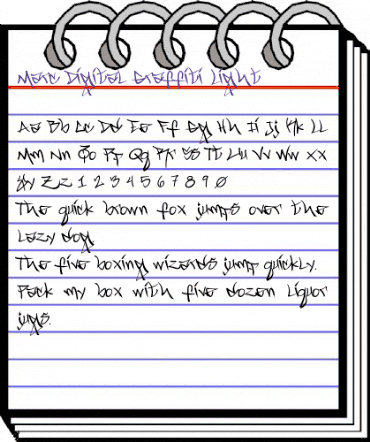 Marc Digital Graffiti Light
Aa Bb Cc Dd Ee Ff Gg Hh Ii Jj Kk LL
Mm Nn Oo Pp Qq Rr Ss Tt Uu Vv Ww Xx
Yy Zz 1 2 3 4 5 6 7 8 9 0
The quick brown fox jumps over the
Lazy dog
The five boxing wizards jump quickly.
Pack my box with five dozen liquor
jugs.